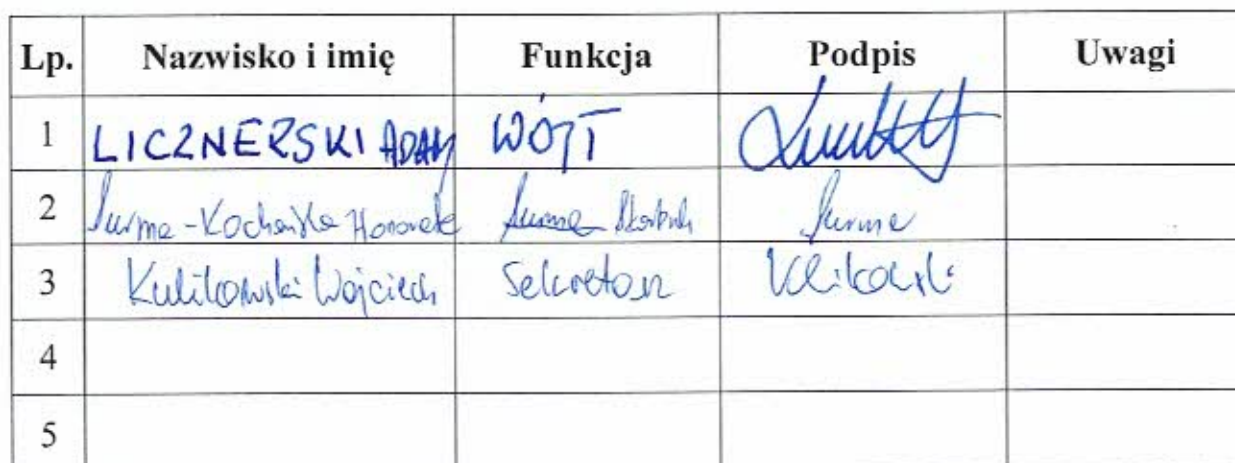 Lp. Nazwisko i imię Funkcja Podpis Uwagi
1 LICZNERSKI ADAM WÓJT
2 Surma-Kochańska Honorata Surma Skarbnik Surma
3 Kulikowski Wojciech Sekretarz Kulikowski
4
5